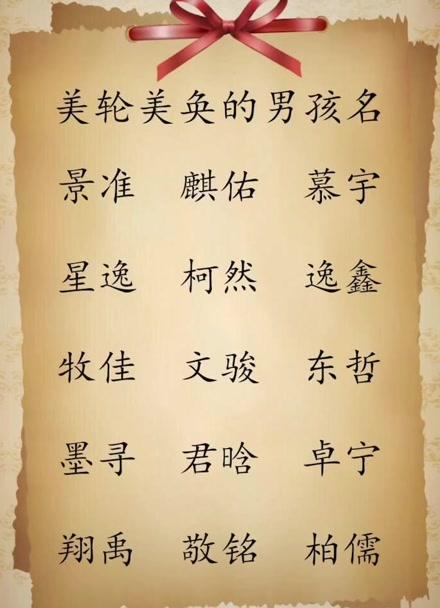 美轮美奂的男孩名
景准 麒佑 慕宇
星逸 柯然 逸鑫
牧佳 文骏 东哲
墨寻 君晗 卓宁
翔禹 敬铭 柏儒